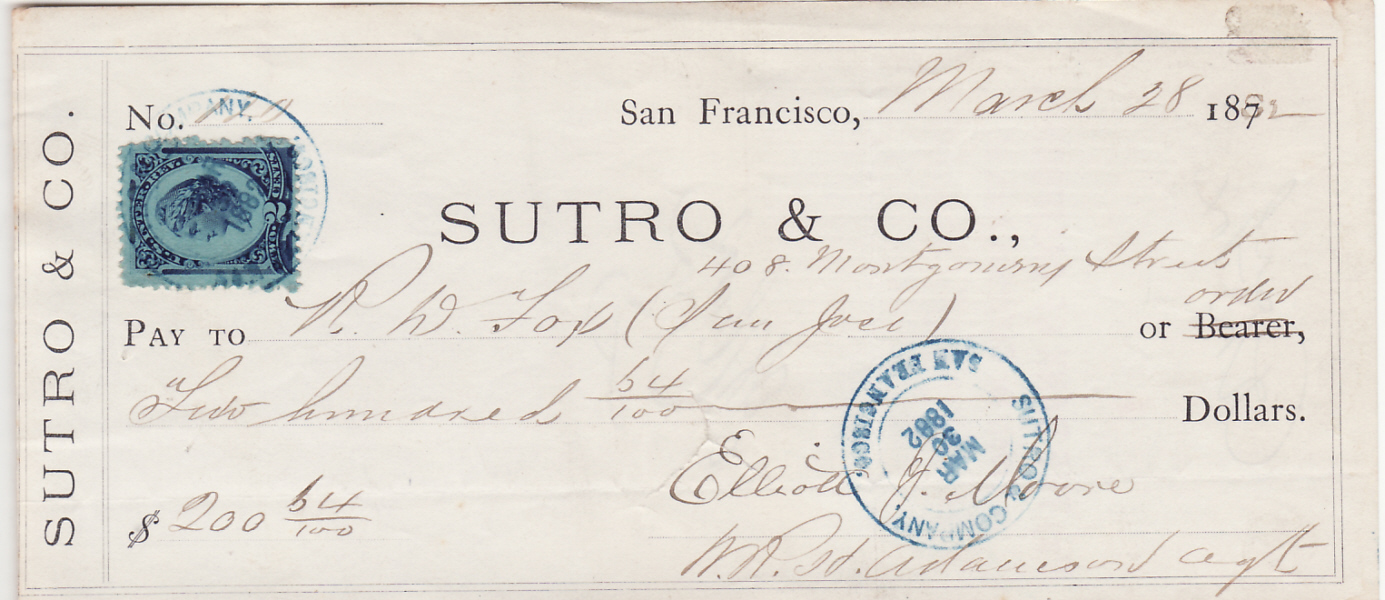 SUTRO & CO.
No.
San Francisco, March 28 1882
SUTRO & CO.,
408. Montgomery Street
order
PAY TO R. W. Fox (San Jose) or Bearer,
Two hundred 64/100 Dollars.
$ 200 64/100
Elliott J. Moore
Adamson agt
SUTRO & COMPANY,
SAN FRANCISCO.
MAR
30
1882
COMPANY,
1882
INTER. REV.